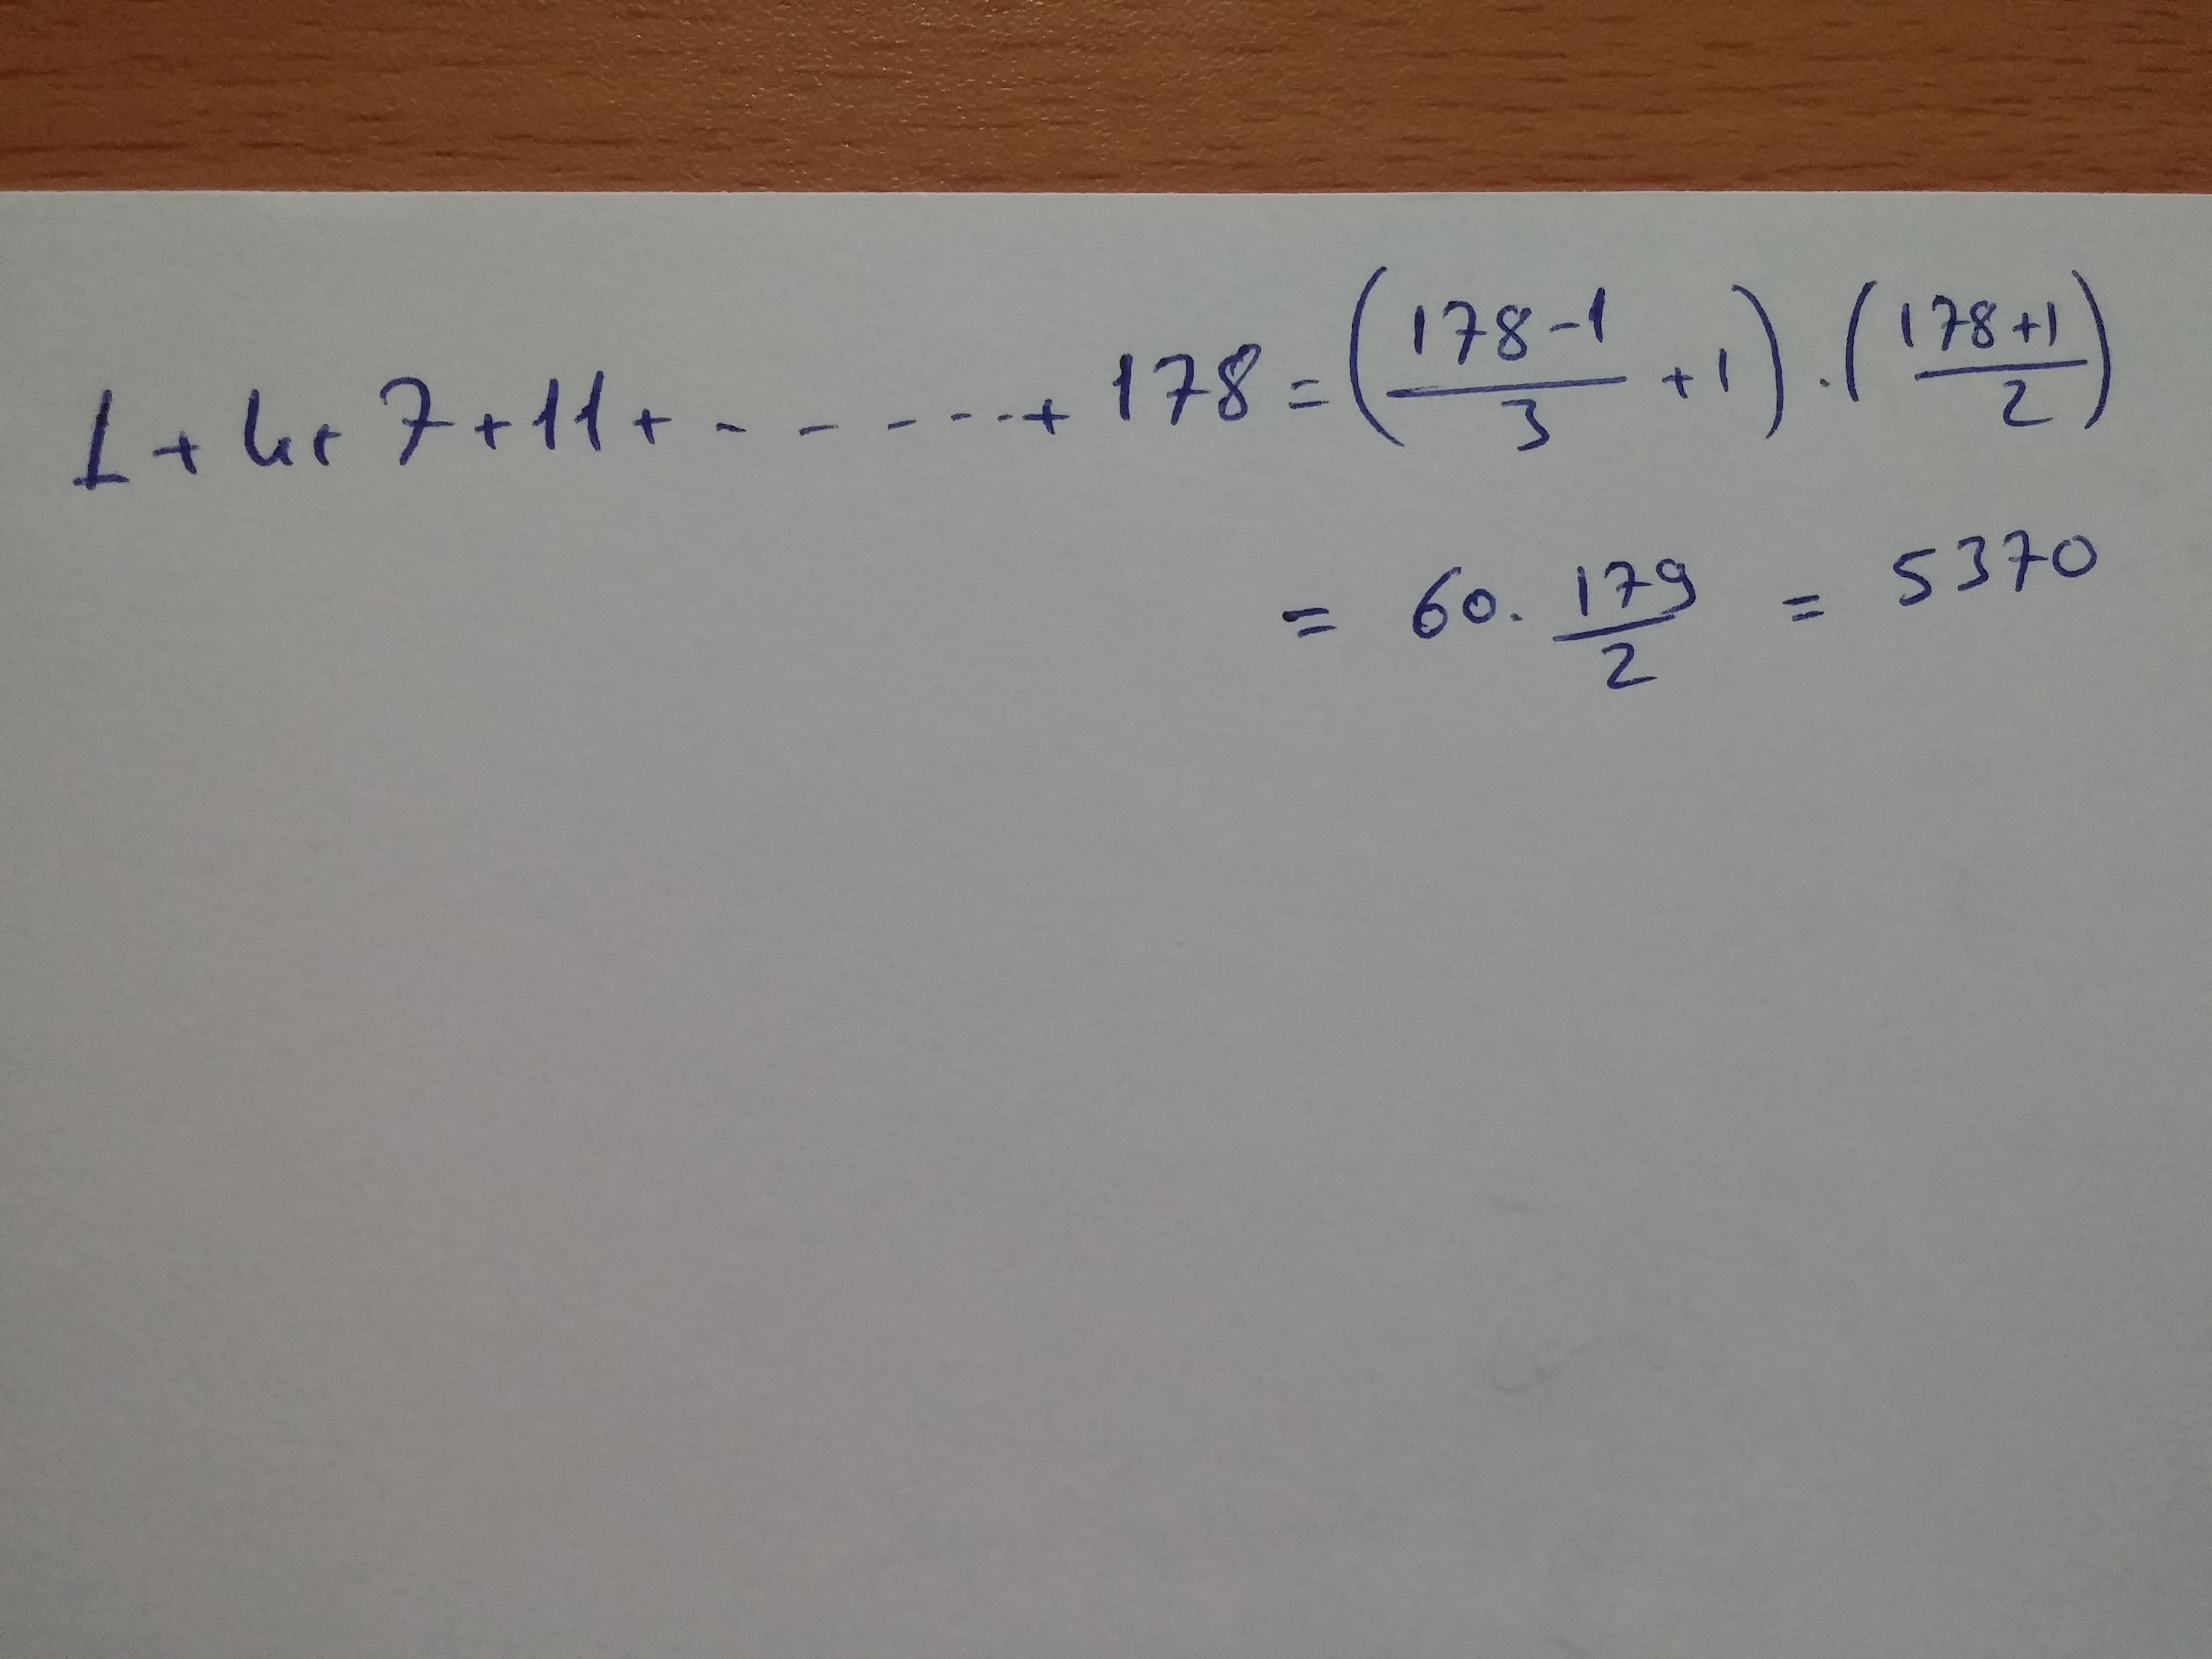 1 + 4 + 7 + 11 + - - - - - - + 178 = ((178-1)/3 + 1) . ((178+1)/2)
= 60 . 179/2 = 5370